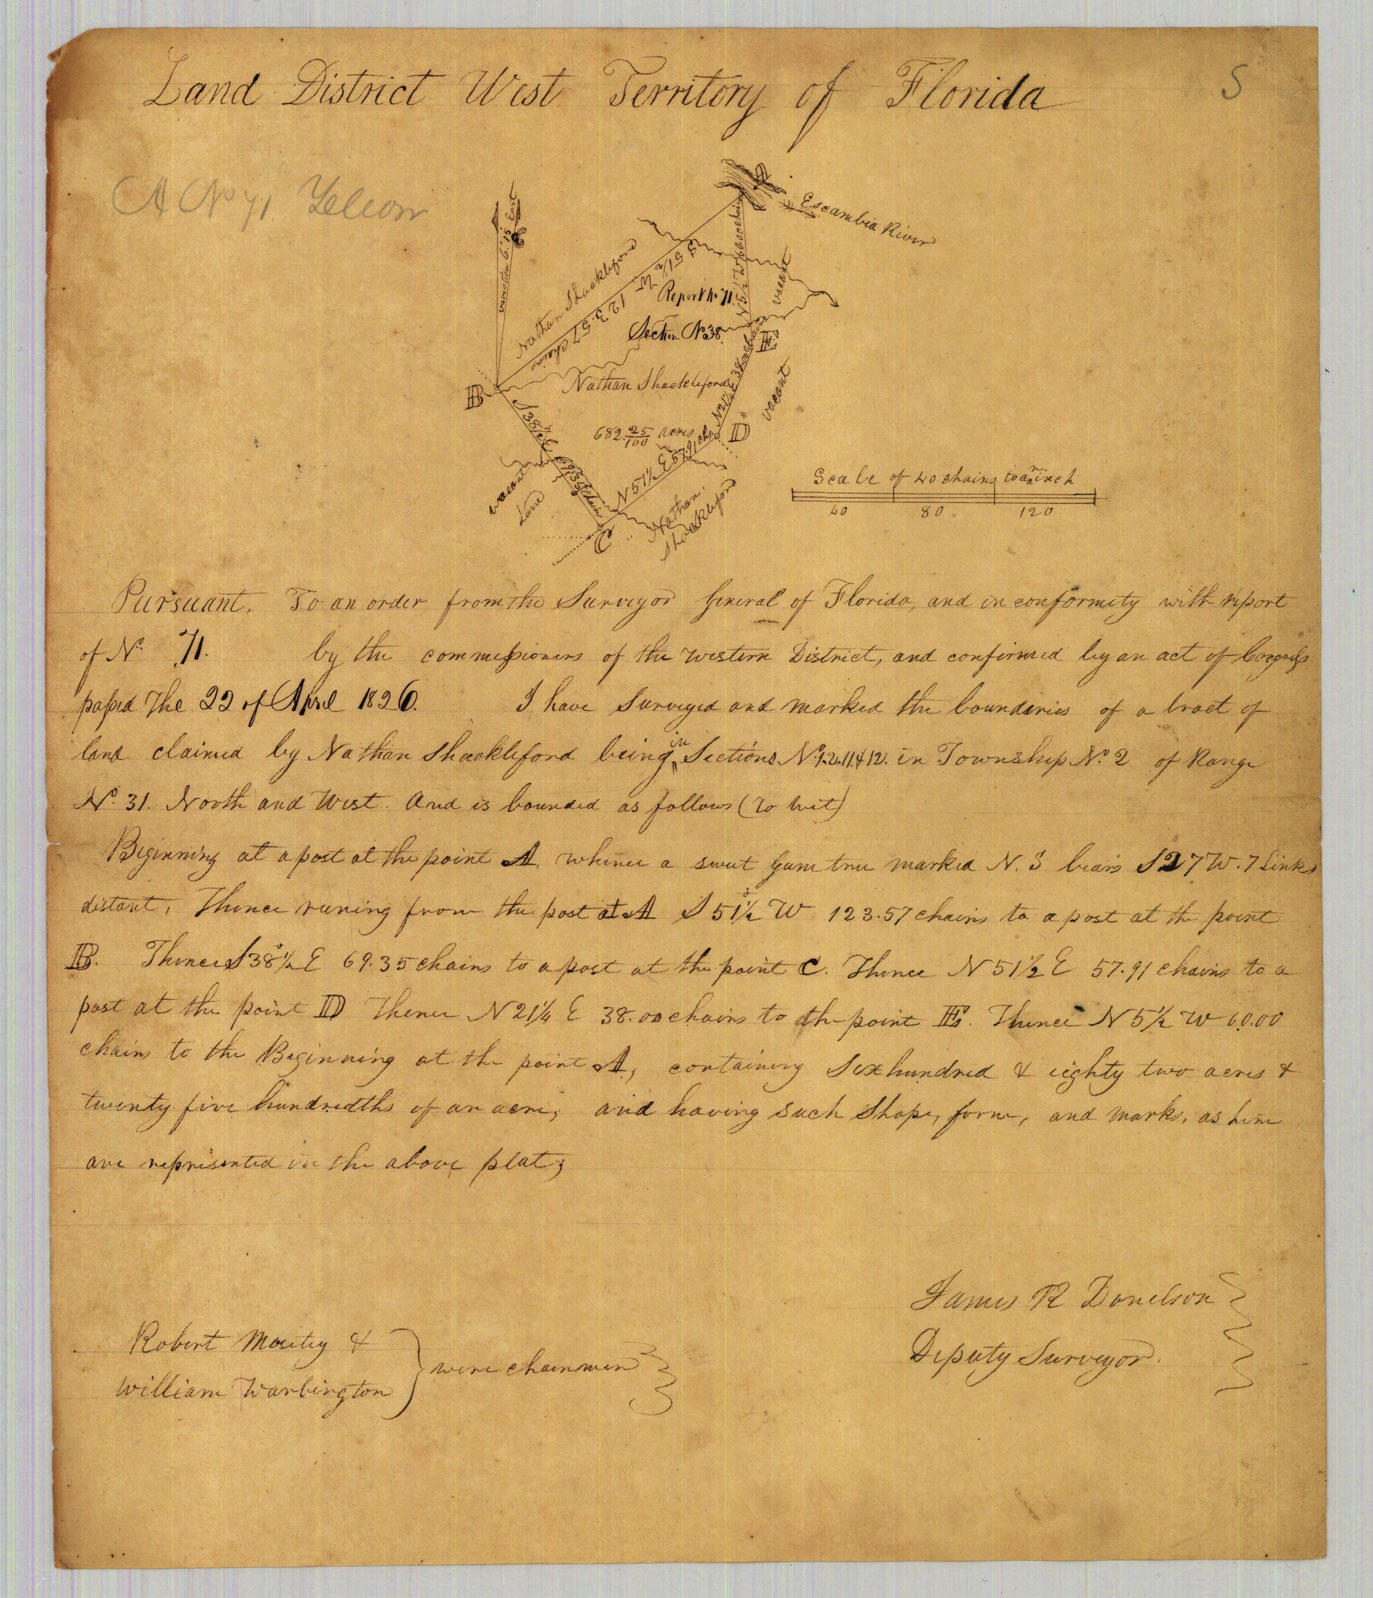 Land District West Territory of Florida
S
A No 71
variation 6.15 East
A
Escambia River
Nathan Shackleford
S 51½ W 123.57 chains
N 5½ W
vacant
Report No 71.
Section No 38.
E
B
Nathan Shackleford
N 21¼ E 38.00 chains
vacant
682 25/100 acres
D
S 38½ E 69.35 chains
N 51½ E 57.91 ch
vacant
Land
Nathan
Shackleford
C
Scale of 40 chains to an inch
40 80 120
Pursuant. To an order from the Surveyor General of Florida, and in conformity with report
of No 71. by the commissioners of the western District, and confirmed by an act of Congress
passed the 22 of April 1826. I have Surveyed and marked the boundaries of a tract of
land claimed by Nathan Shackleford being in Sections No 1.2.11.&12. in Township No. 2 of Range
No. 31. North and West. And is bounded as follows (to wit)
Beginning at a post at the point A whence a sweet Gum tree marked N. S bears S 27 W. 7 Links
distant, Thence runing from the post at A S 51½ W 123.57 chains to a post at the point
B. Thence S 38½ E 69.35 chains to a post at the point C. Thence N 51½ E 57.91 chains to a
post at the point D Thence N 21¼ E 38.00 chains to the point E. Thence N 5½ W 60.00
chains to the Beginning at the point A, containing Six hundred & eighty two acres &
twenty five hundredths of an acre, and having such Shape, form, and marks, as here
are represented in the above plat;
James R Donelson
Deputy Surveyor.
Robert &
William Warbington
were chainmen